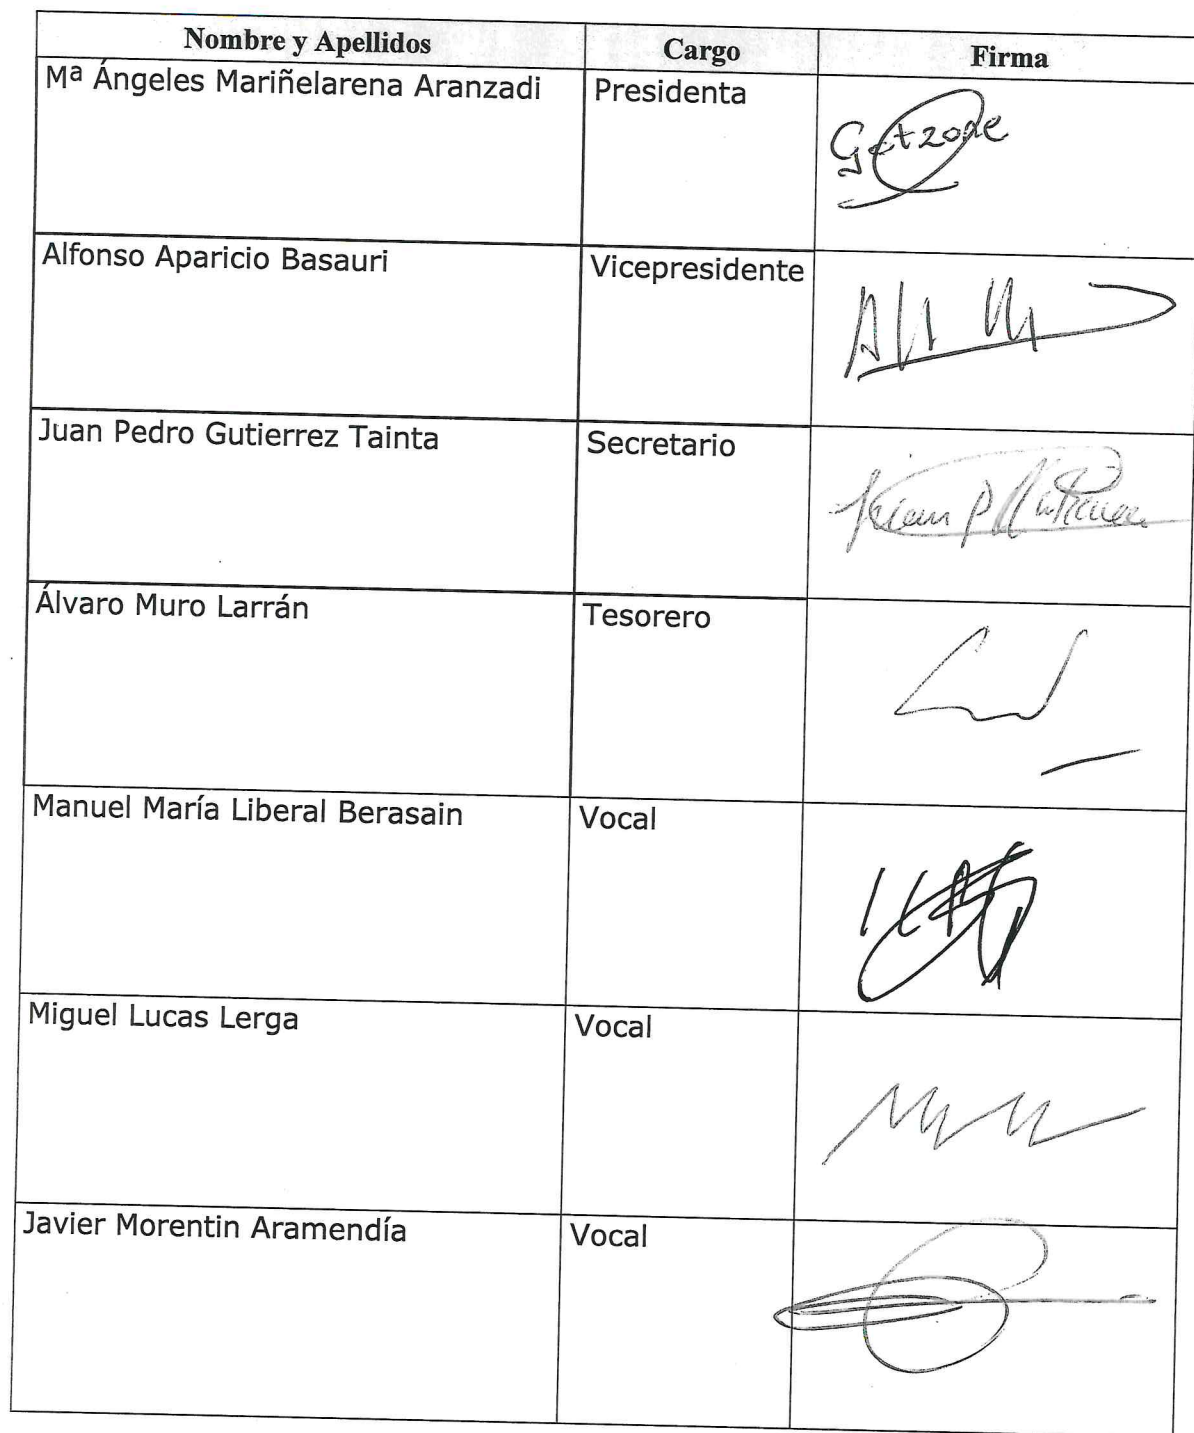 Nombre y Apellidos Cargo Firma
Mª Ángeles Mariñelarena Aranzadi Presidenta
Alfonso Aparicio Basauri Vicepresidente
Juan Pedro Gutierrez Tainta Secretario
Álvaro Muro Larrán Tesorero
Manuel María Liberal Berasain Vocal
Miguel Lucas Lerga Vocal
Javier Morentin Aramendía Vocal